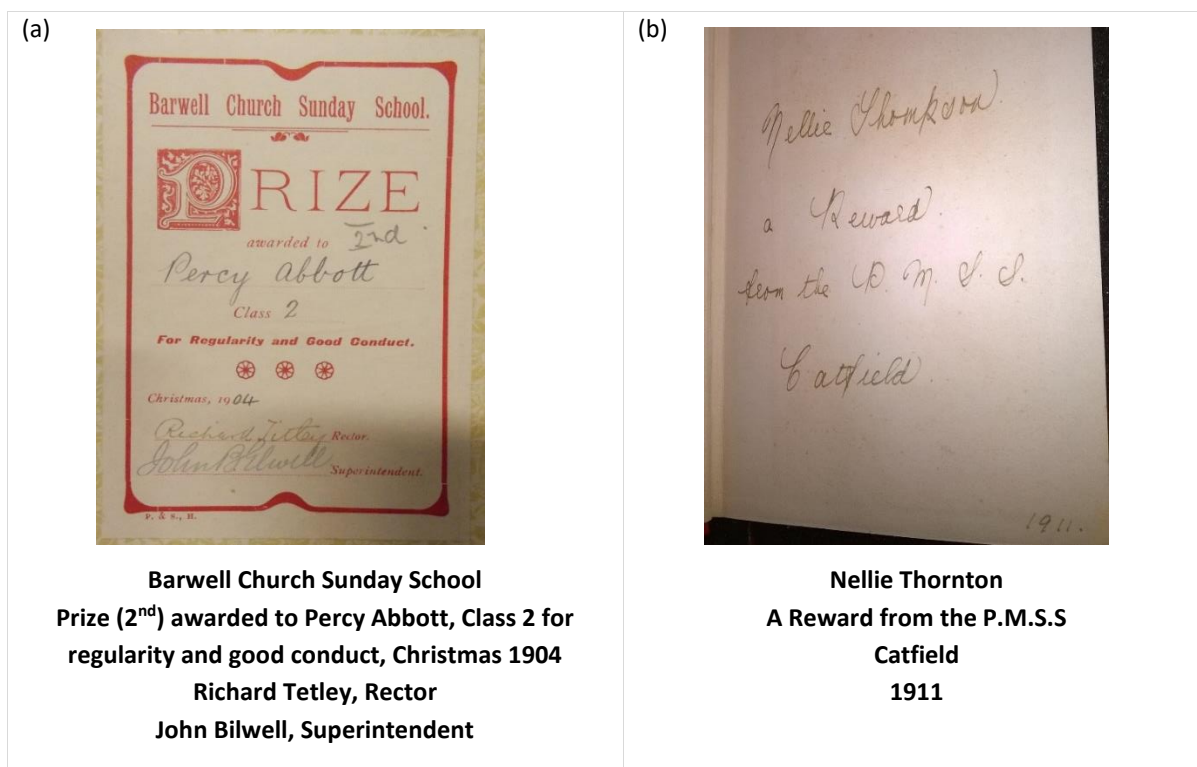 (a)
Barwell Church Sunday School.
PRIZE
awarded to 2nd
Percy Abbott
Class 2
For Regularity and Good Conduct.
Christmas, 1904
Richard Tetley Rector.
John B Elwell Superintendent.
P. & S., H.
Barwell Church Sunday School
Prize (2nd) awarded to Percy Abbott, Class 2 for
regularity and good conduct, Christmas 1904
Richard Tetley, Rector
John Bilwell, Superintendent
(b)
Nellie Thompson.
a Reward.
from the P. M. S. S.
Catfield.
1911.
Nellie Thornton
A Reward from the P.M.S.S
Catfield
1911